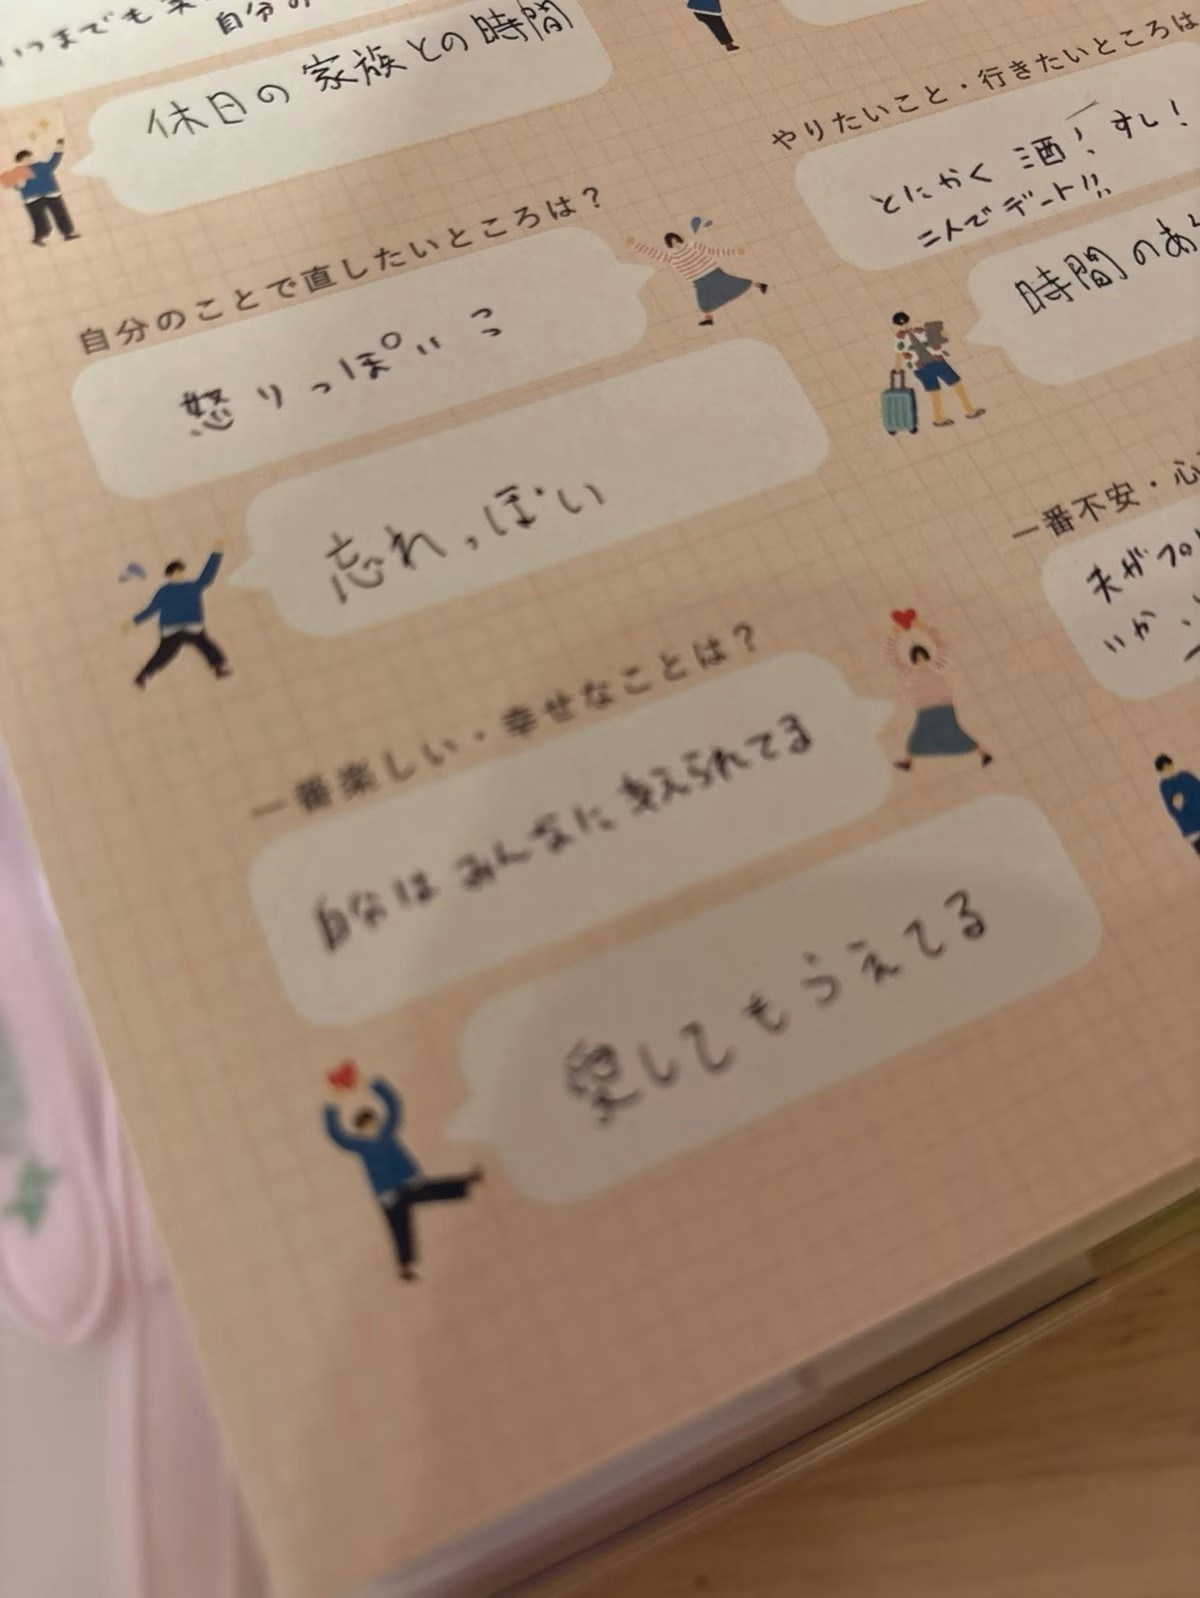 いつまでも
自分の
休日の家族との時間
自分のことで直したいところは？
怒りっぽいっこ
忘れっぽい
一番楽しい・幸せなことは？
自分はみんなに支えられてる
愛してもらえてる
やりたいこと・行きたいところは
とにかく酒！すし！
二人でデート!!
時間のあ
一番不安・心
夫がフロ
いか、